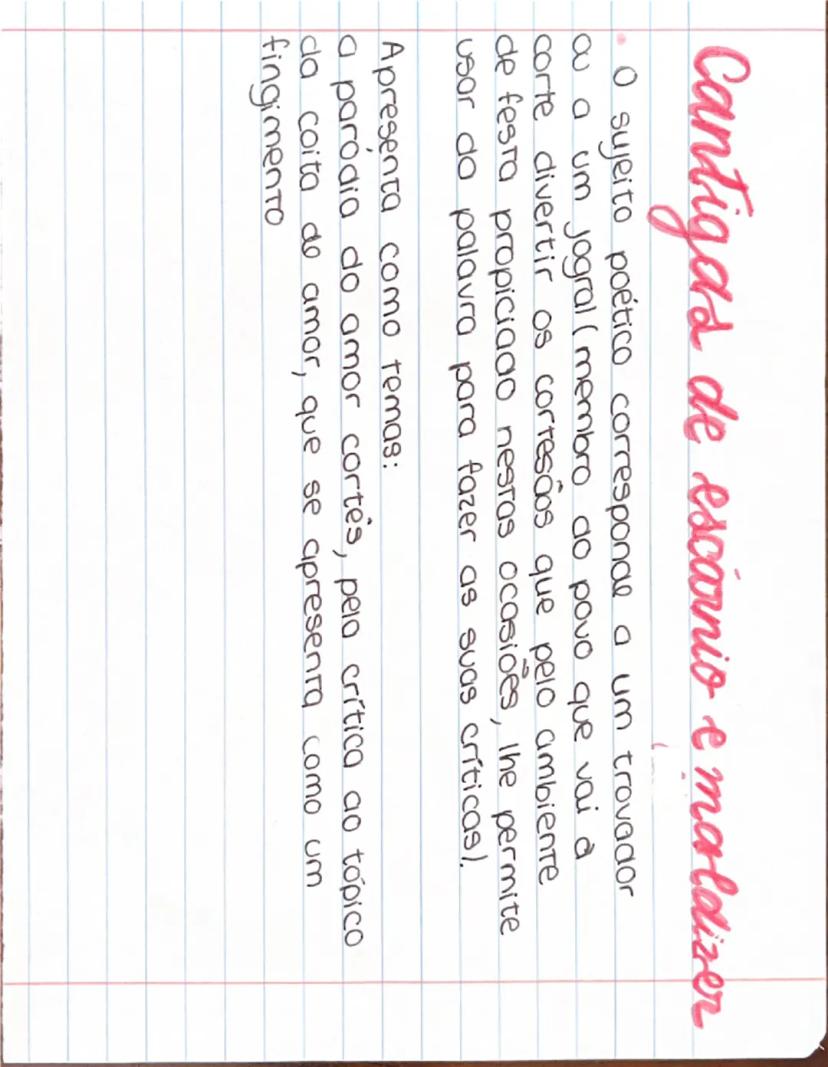 Cantigas de escárnio e maldizer
• O sujeito poético corresponde a um trovador
ou a um jogral (membro do povo que vai à
corte divertir os cortesãos que pelo ambiente
de festa propiciado nestas ocasiões, lhe permite
usar da palavra para fazer as suas críticas).
Apresenta como temas:
a paródia do amor cortês, pela crítica ao tópico
da coita de amor, que se apresenta como um
fingimento